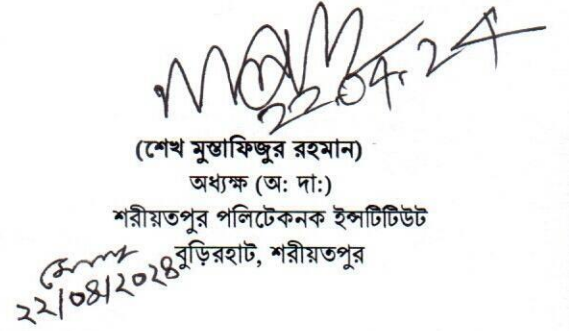 22.04.24
(শেখ মুস্তাফিজুর রহমান)
অধ্যক্ষ (অ: দা:)
শরীয়তপুর পলিটেকনক ইন্সটিটিউট
বুড়িরহাট, শরীয়তপুর
২২/০৪/২০২৪